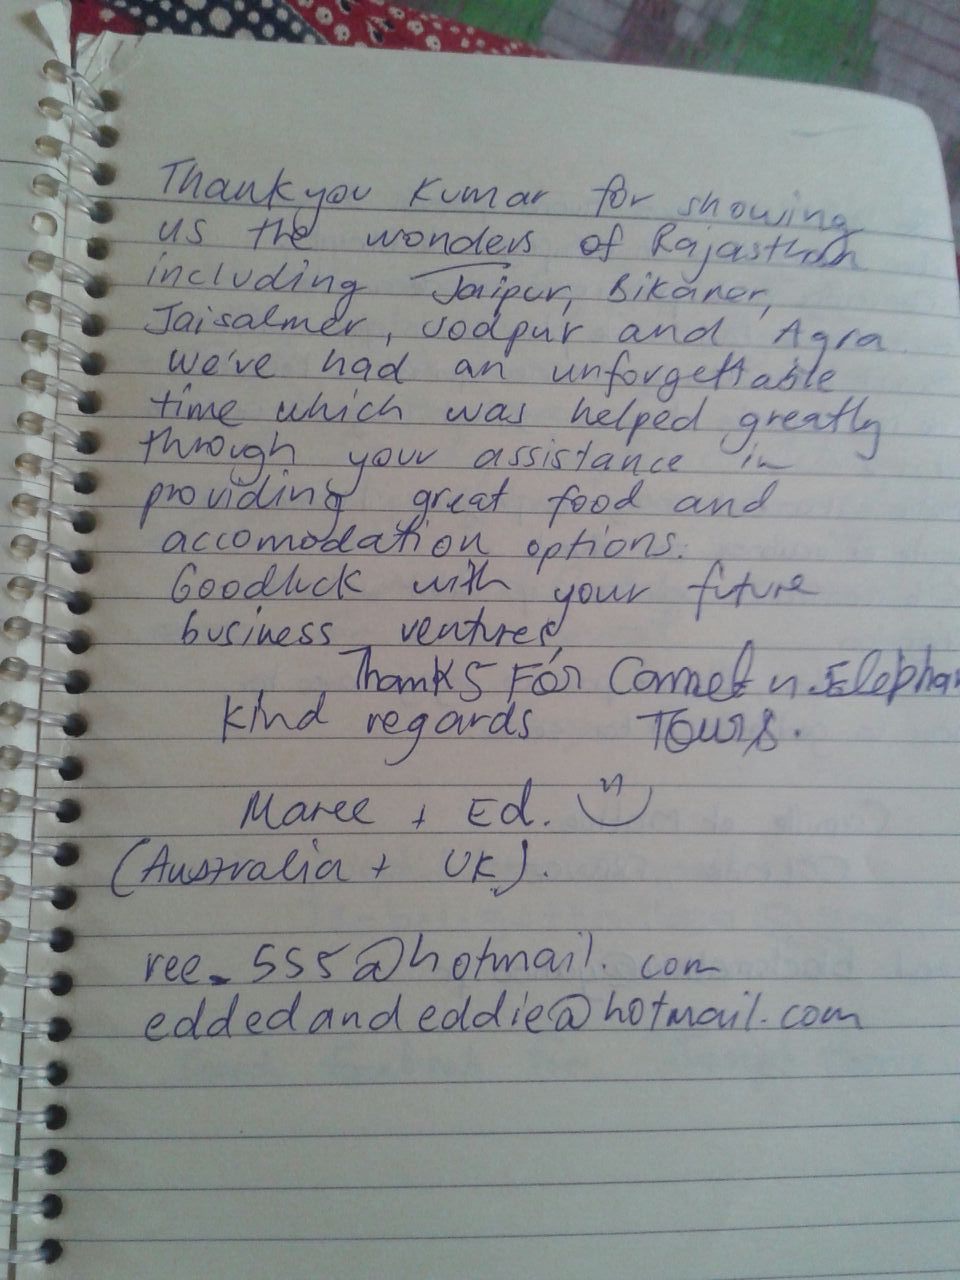 Thankyou Kumar for showing
us the wonders of Rajasthan
including Jaipur, Bikaner,
Jaisalmer, Jodpur and Agra
We've had an unforgettable
time which was helped greatly
through your assistance in
providing great food and
accomodation options.
Goodluck with your future
business ventures,
Thanks For Camel n Elephan
Kind regards Tours.
Maree + Ed.
(Australia + UK).
ree_555@hotmail.com
eddedandeddie@hotmail.com